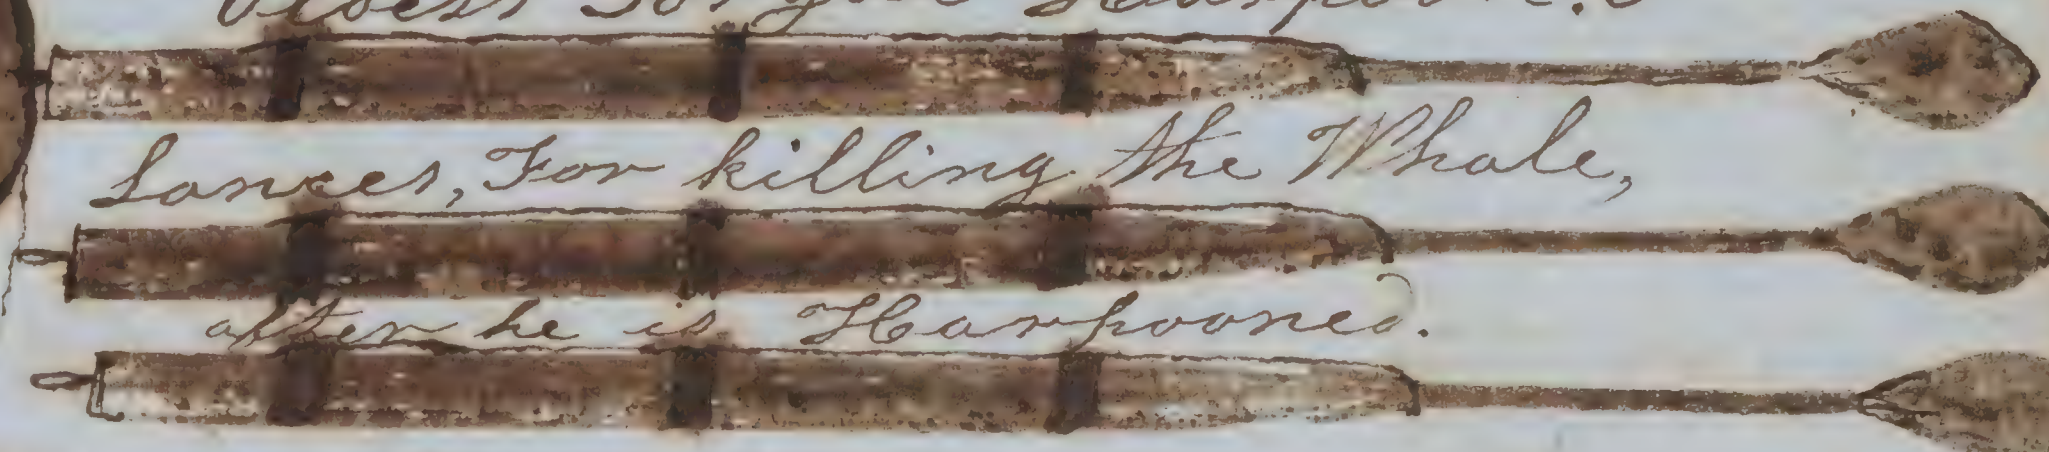 Lances, For killing the Whale,
after he is Harpooned.